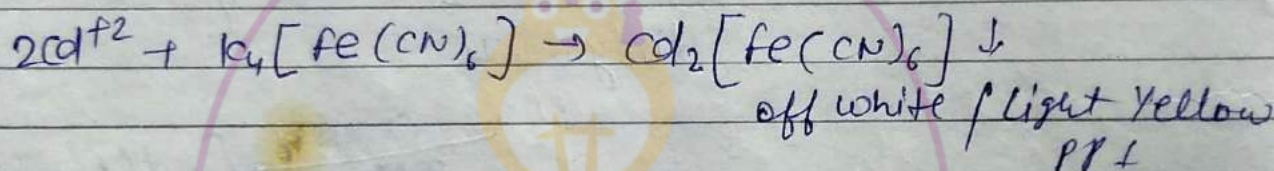 2Cd⁺² + K₄[Fe(CN)₆] → Cd₂[Fe(CN)₆] ↓
off white / Light Yellow
PPt